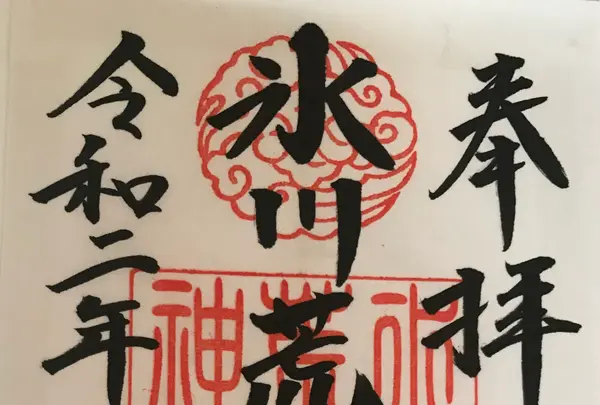 奉拝
氷川荒
令和二年